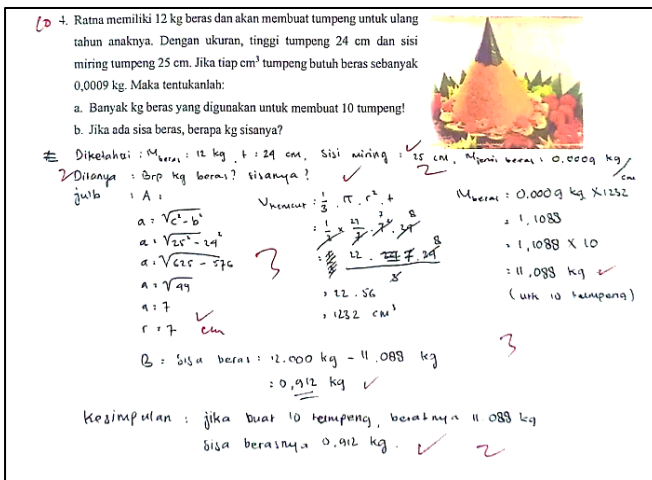 10 4. Ratna memiliki 12 kg beras dan akan membuat tumpeng untuk ulang
tahun anaknya. Dengan ukuran, tinggi tumpeng 24 cm dan sisi
miring tumpeng 25 cm. Jika tiap cm³ tumpeng butuh beras sebanyak
0,0009 kg. Maka tentukanlah:
a. Banyak kg beras yang digunakan untuk membuat 10 tumpeng!
b. Jika ada sisa beras, berapa kg sisanya?
Diketahui : M beras : 12 kg, t : 24 cm, sisi miring : 25 cm, M jenis beras : 0.0009 kg/cm
2 Ditanya : Brp kg beras? sisanya? 2
jwb : A :
a = √c² - b²
a = √25² - 24²
a = √625 - 576
a = √49
a = 7
r = 7 cm
V kerucut : 1/3 . π . r² . t
: 1/3 × 22/7 . 7² . 24 8
: 22 . 7 . 24 8
3
= 22 . 56
= 1232 cm³
3
M beras : 0.0009 kg × 1232
= 1,1088
= 1,1088 × 10
: 11,088 kg
(utk 10 tumpeng)
B = sisa beras : 12.000 kg - 11.088 kg
: 0,912 kg
3
Kesimpulan : jika buat 10 tumpeng, beratnya 11.088 kg
sisa berasnya 0,912 kg. 2